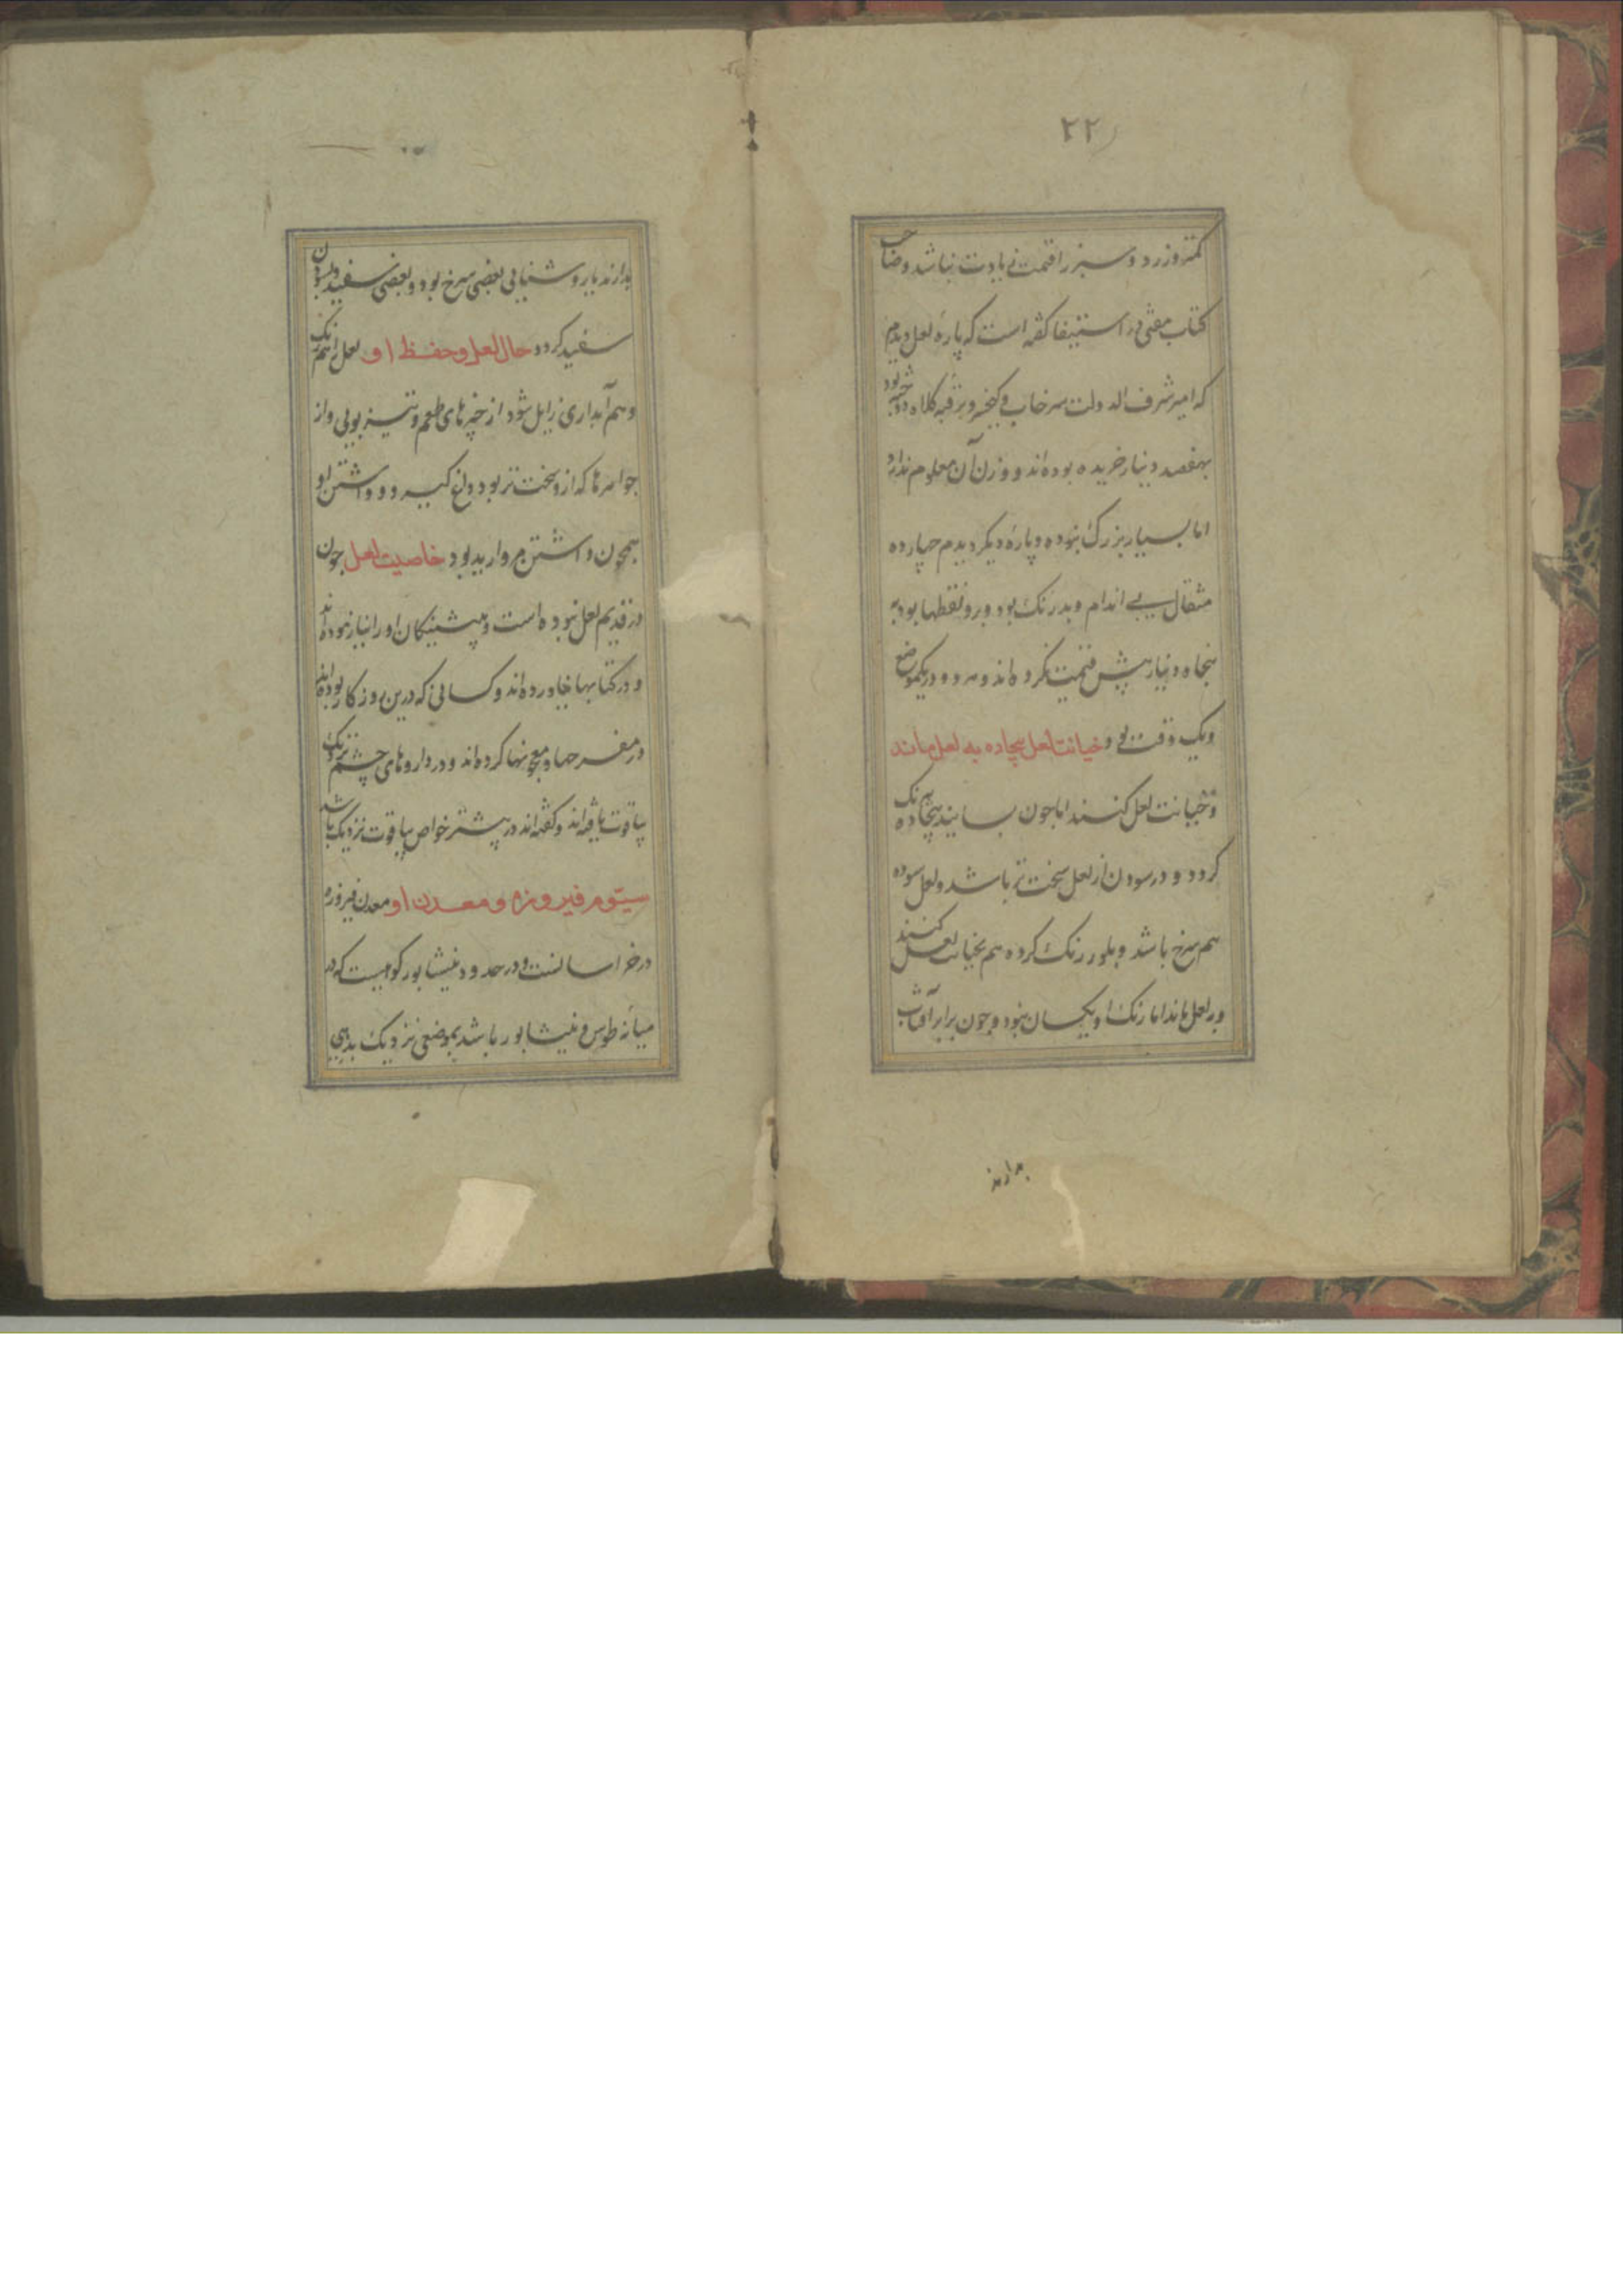 ۲۲
کمتر و زرد و سبز را قیمت زیادت نباشد و صاحب
کتاب در استیفا گفته است که پارهٔ لعل دیدم
که امیر شرف الدولت سرخاب و بر قبه کلاه دوخته بود
بهفصد دینار خریده بوده‌اند و وزن آن معلوم ندارد
اما بسیار بزرگ نبوده و پارهٔ دیگر دیدم چهارده
مثقال بی اندام و بدرنک بود و برو نقطها بود به
پنجاه دینار بیش قیمت نکرده‌اند و هر دو در یکموضع
و یک وقت بود خیانت لعل بیجاده به لعل ماند
و خیانت لعل کنند اما چون بسایند بیجاده رنک
کردد و در سودن از لعل سخت تر باشد و لعل سوده
هم سرخ باشد و بلور رنک کرده هم بخیانت لعل کنند
و بلعل ماند اما رنک او یکسان نبود و چون برابر آفتاب
بدارند
بدارند یا روشنایی بعضی سرخ بود و بعضی سفید و بسودن
سفید کردد حال لعل و حفظ او لعل را هم رنک
و هم آبداری زایل شود از چیزهای طعم و تیز بویی و از
جواهرها که ازو سخت تر بود داغ کیرد و داشتن او
همچون داشتن مروارید بود خاصیت لعل چون
در قدیم لعل نبوده است و پیشینکان او را نیازموده‌اند
و در کتابها نیاورده‌اند و کسانی که درین روزکار بوده‌اند
در مفرحها و معجونها کرده‌اند و در داروهای چشم نزدیک
بیاقوت یافته‌اند و کفته‌اند در بیشتر خواص بیاقوت نزدیک باشد
سیوم فیروزه و معدن او معدن فیروزه
در خراسانست و در حدود نیشابور کوهیست که در
میانه طوس و نیشابور باشد بموضعی نزدیک بدیهی